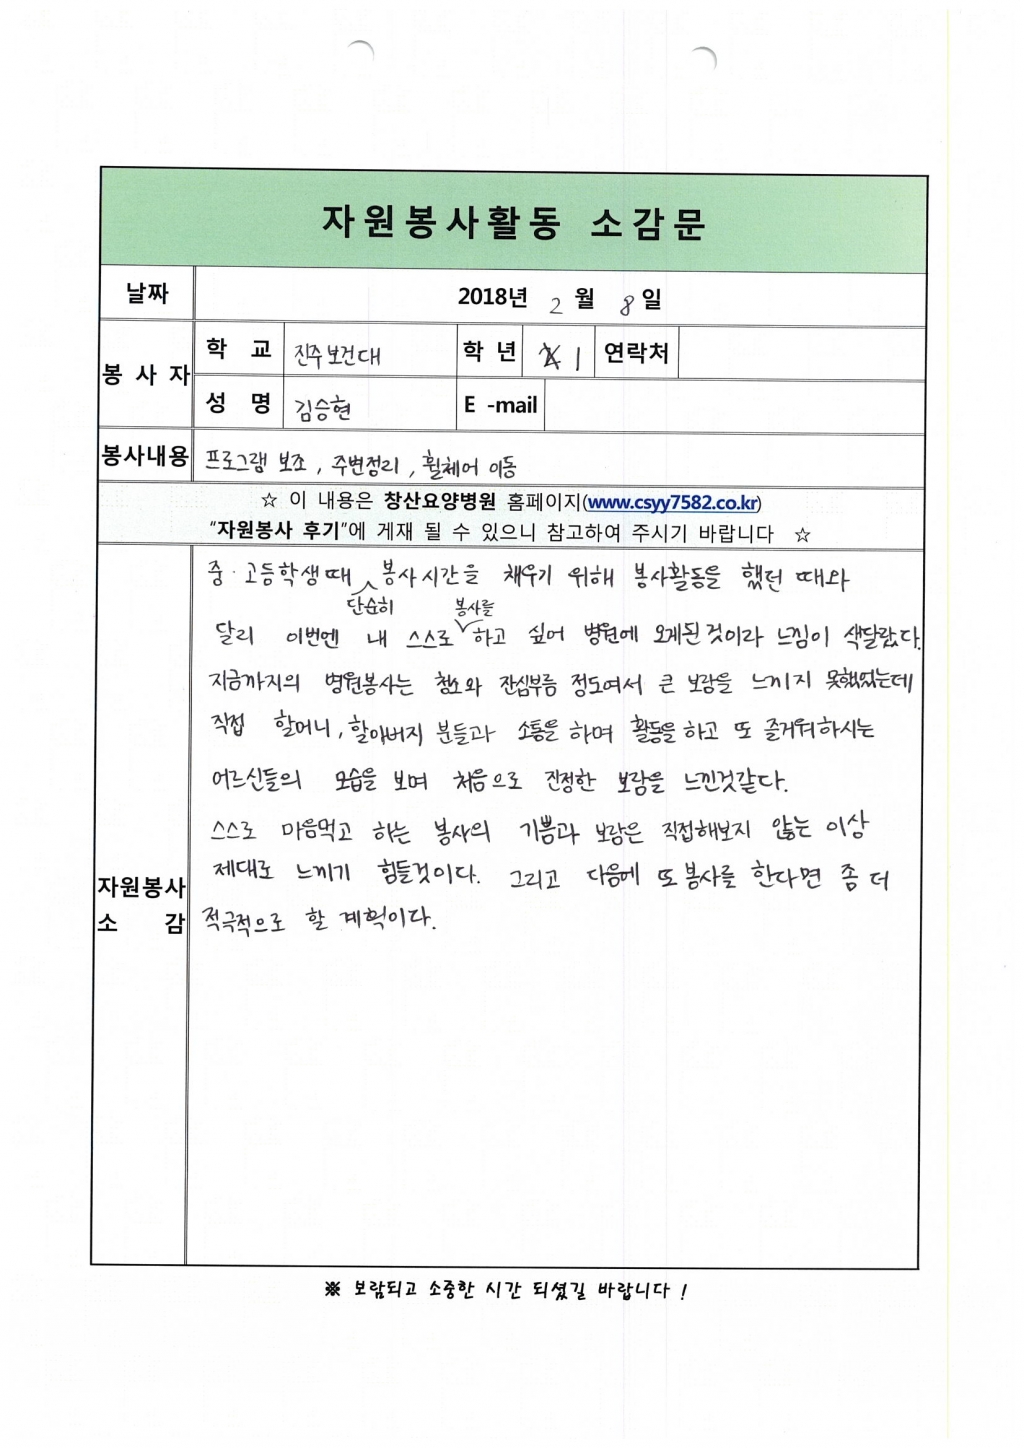 자원봉사활동 소감문
날짜 2018년 2 월 8 일
봉 사 자
학 교 진주보건대 학 년 1 연락처
성 명 김승현 E -mail
봉사내용 프로그램 보조, 주변정리, 휠체어 이동
☆ 이 내용은 창산요양병원 홈페이지(www.csyy7582.co.kr)
"자원봉사 후기"에 게재 될 수 있으니 참고하여 주시기 바랍니다 ☆
자원봉사
소 감
중·고등학생때 단순히 봉사시간을 채우기 위해 봉사활동을 했던 때와
달리 이번엔 내 스스로 봉사를 하고 싶어 병원에 오게된 것이라 느낌이 색달랐다.
지금까지의 병원봉사는 청소와 잔심부름 정도여서 큰 보람을 느끼지 못했었는데
직접 할머니, 할아버지 분들과 소통을 하며 활동을 하고 또 즐거워하시는
어르신들의 모습을 보며 처음으로 진정한 보람을 느낀것같다.
스스로 마음먹고 하는 봉사의 기쁨과 보람은 직접해보지 않는 이상
제대로 느끼기 힘들것이다. 그리고 다음에 또 봉사를 한다면 좀 더
적극적으로 할 계획이다.
※ 보람되고 소중한 시간 되셨길 바랍니다 !